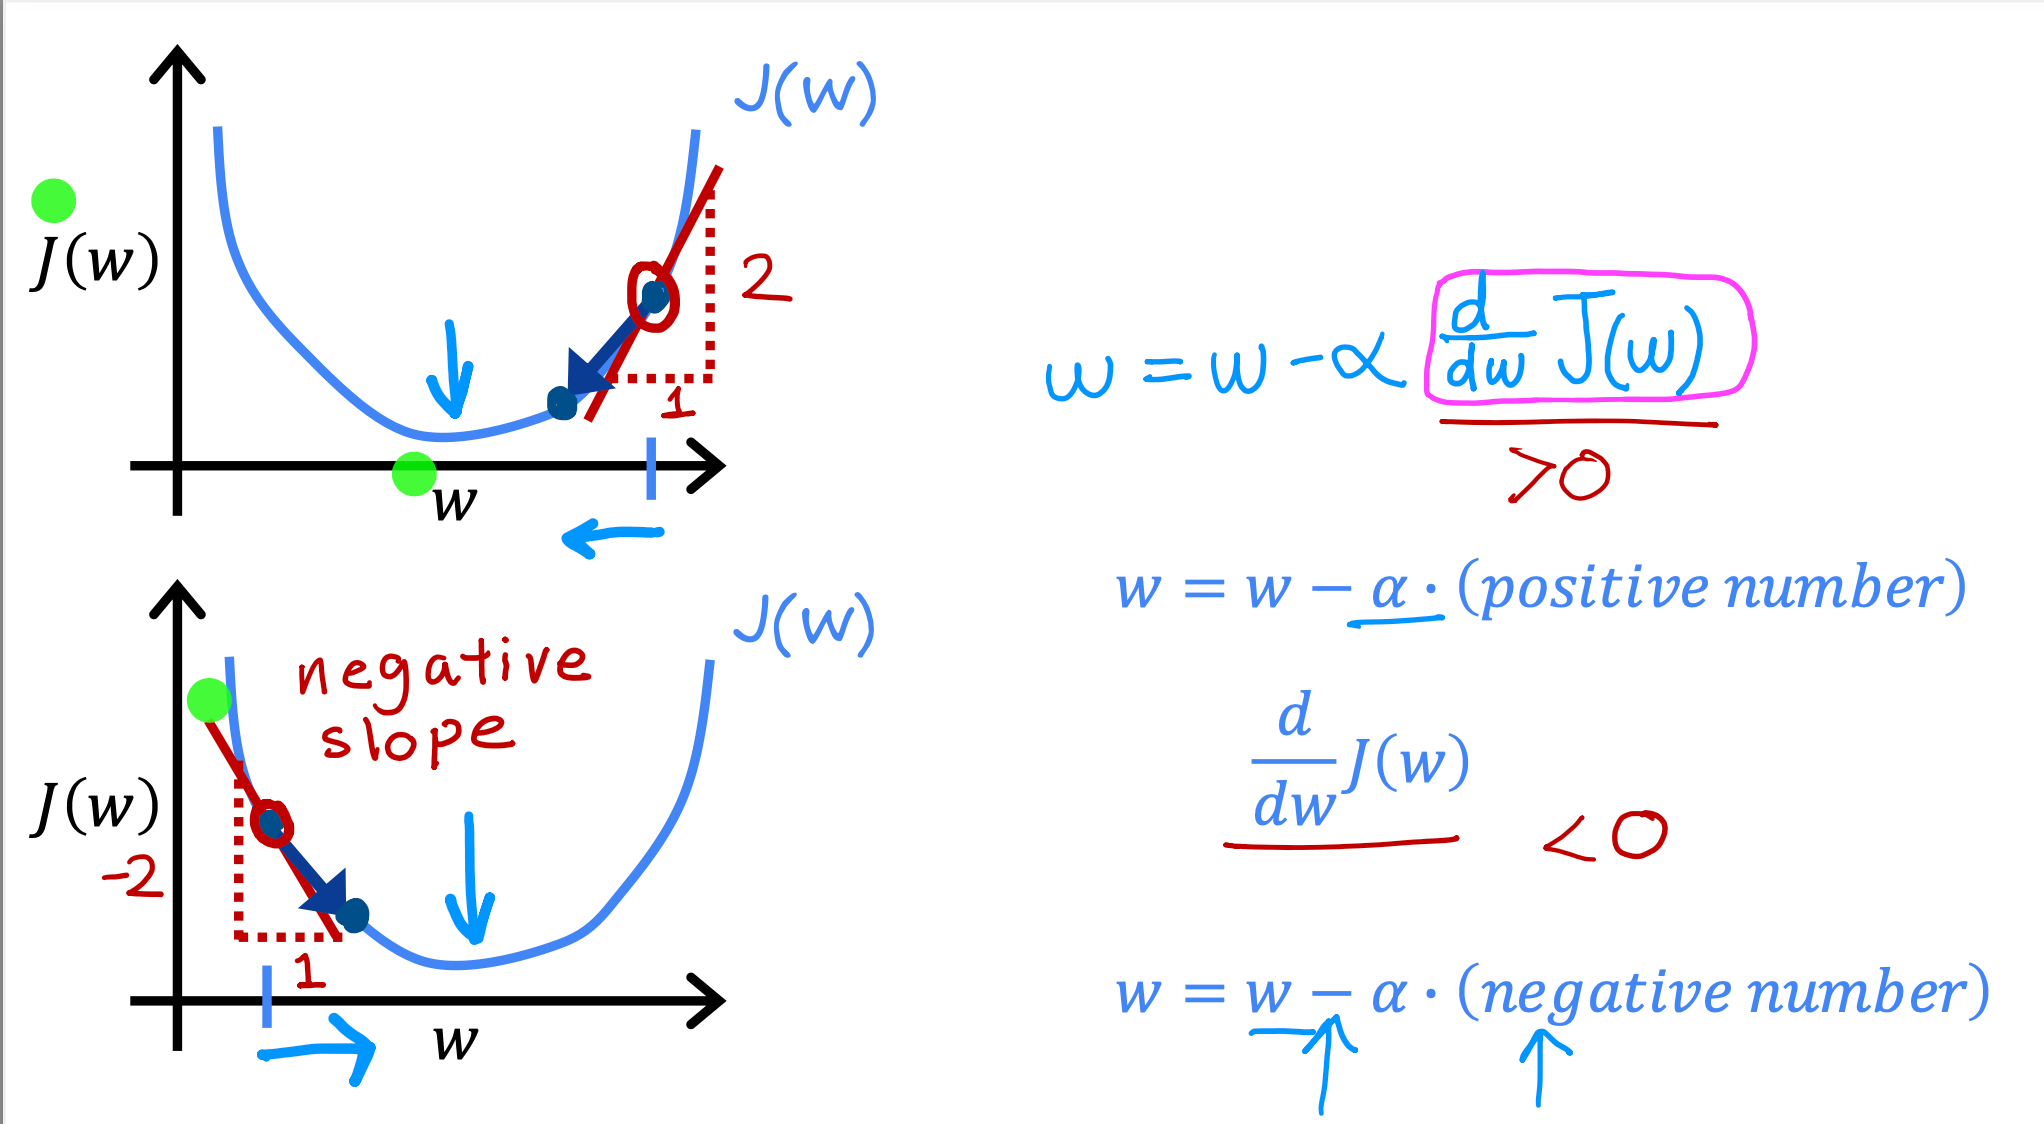 J(w)
J(w)
2
1
w
w = w − α d/dw J(w)
>0
w = w − α · (positive number)
J(w)
negative
slope
J(w)
-2
1
w
d/dw J(w)
<0
w = w − α · (negative number)